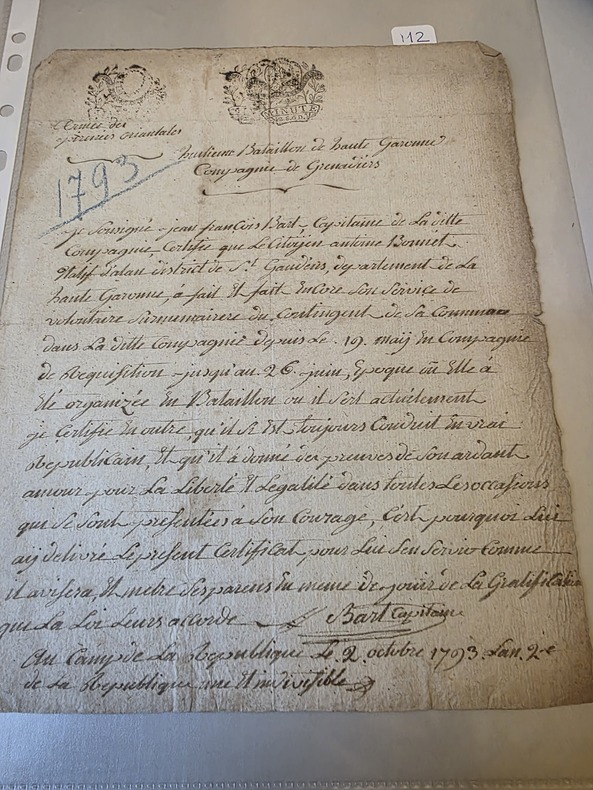 112
MINUTE
Armée des
pirenés orientales
1793
huitieme Bataillon de haute Garonne
Compagnie de Grenadiers
je Soussigné jean françois Bart Capitaine de La ditte
Compagnie, Certifie que Le Citoÿen antoine Bonnet
Natif dalan district de St. Gaudens, departement de La
haute Garonne, à fait Et fait Encore Son Service de
volontaire Surnumeraire du Contingent de Sa Commune
dans La ditte Compagnie depuis Le 19. maÿ En Compagnie
de Requisition jusqu'au 26. juin, Epoque où Elle à
Eté organizée En Bataillon ou il Sert actuelement
je Certifie En outre, qu'il Se Est toujours Conduit En vrai
Republicain, Et qu'il à donné des preuves de Son ardant
amour pour La Liberté Et Legalité dans toutes Les occasions
qui Se Sont presentées à Son Courage, C'est pourquoi Lui
aÿ delivré Le present Certificat pour Lui Sen Servir Comme
il avisera, Et metre Ses parens En meme de jouir de La Gratification
que La Loi Leurs accorde Bart Capitaine
Au Camp de La Republique Le 2. octobre 1793. Lan 2e
de La Republique une Et indivisible